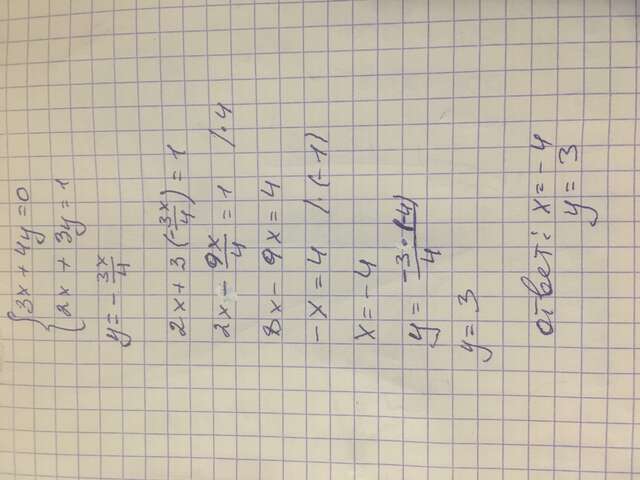 {3x + 4y = 0
{2x + 3y = 1
y = - 3x/4
2x + 3 (-3x/4) = 1
2x - 9x/4 = 1 /·4
8x - 9x = 4
-x = 4 /·(-1)
x = -4
y = -3·(-4)/4
y = 3
ответ: x = -4
y = 3